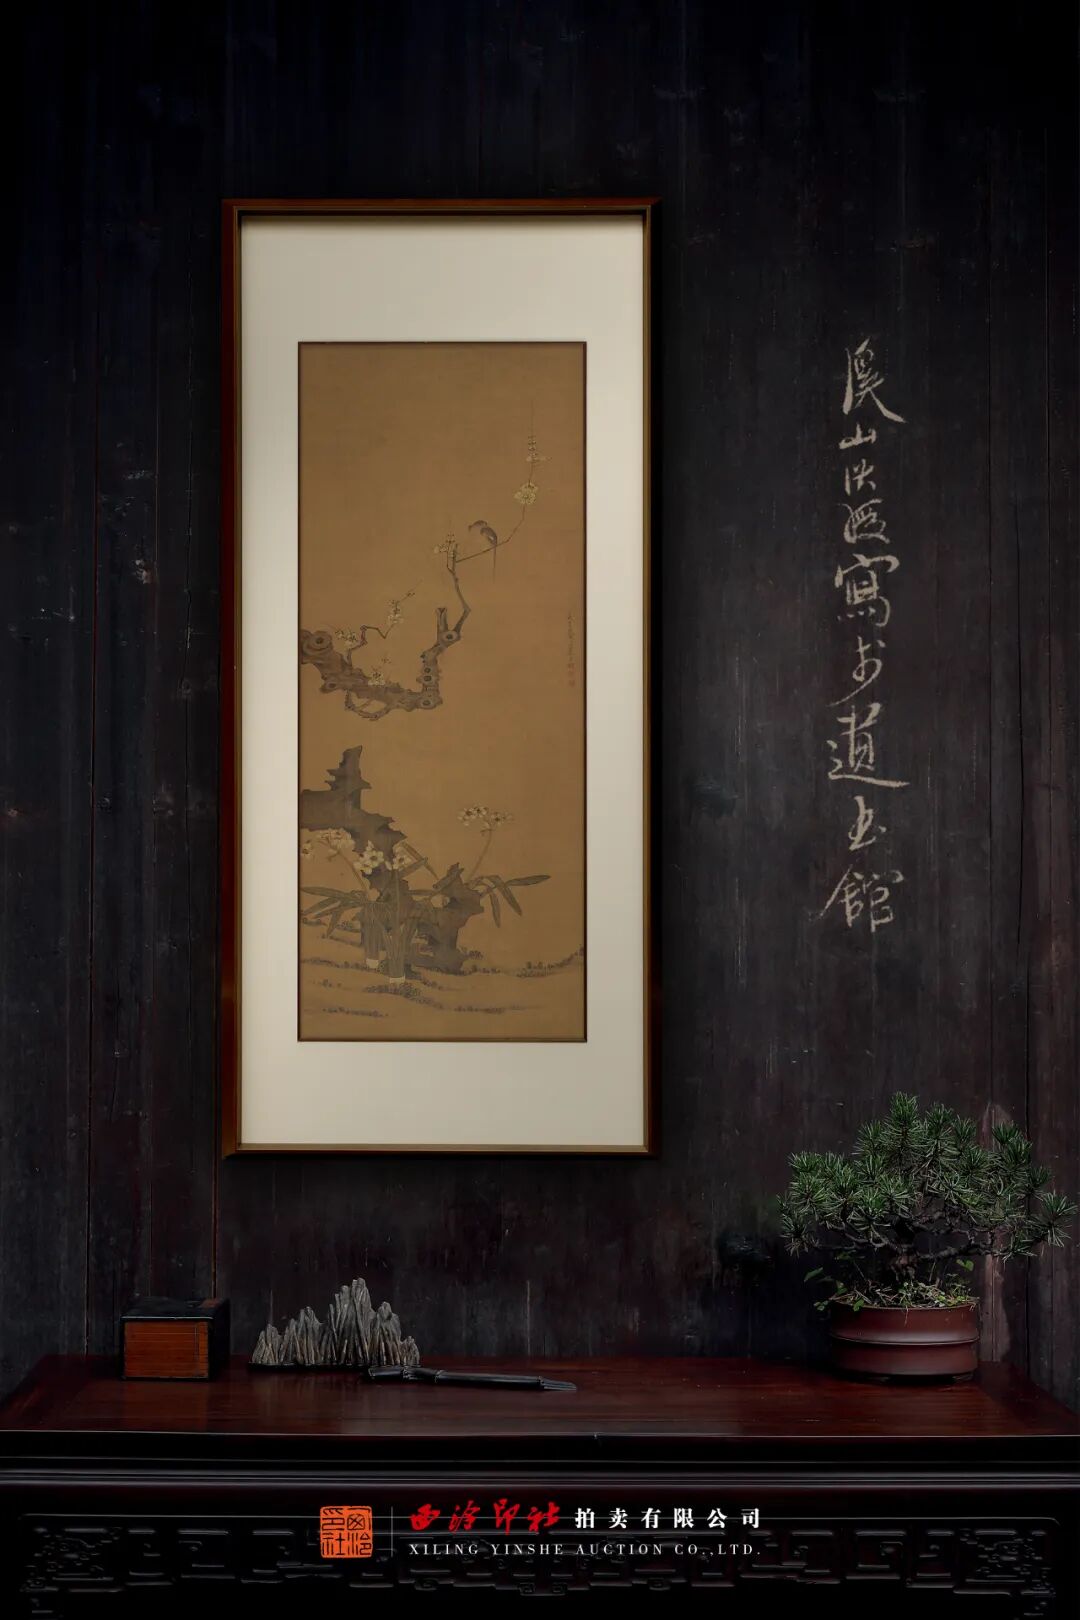 溪山洪洄寫於道古館
西泠印社
西泠印社拍卖有限公司
XILING YINSHE AUCTION CO.,LTD.